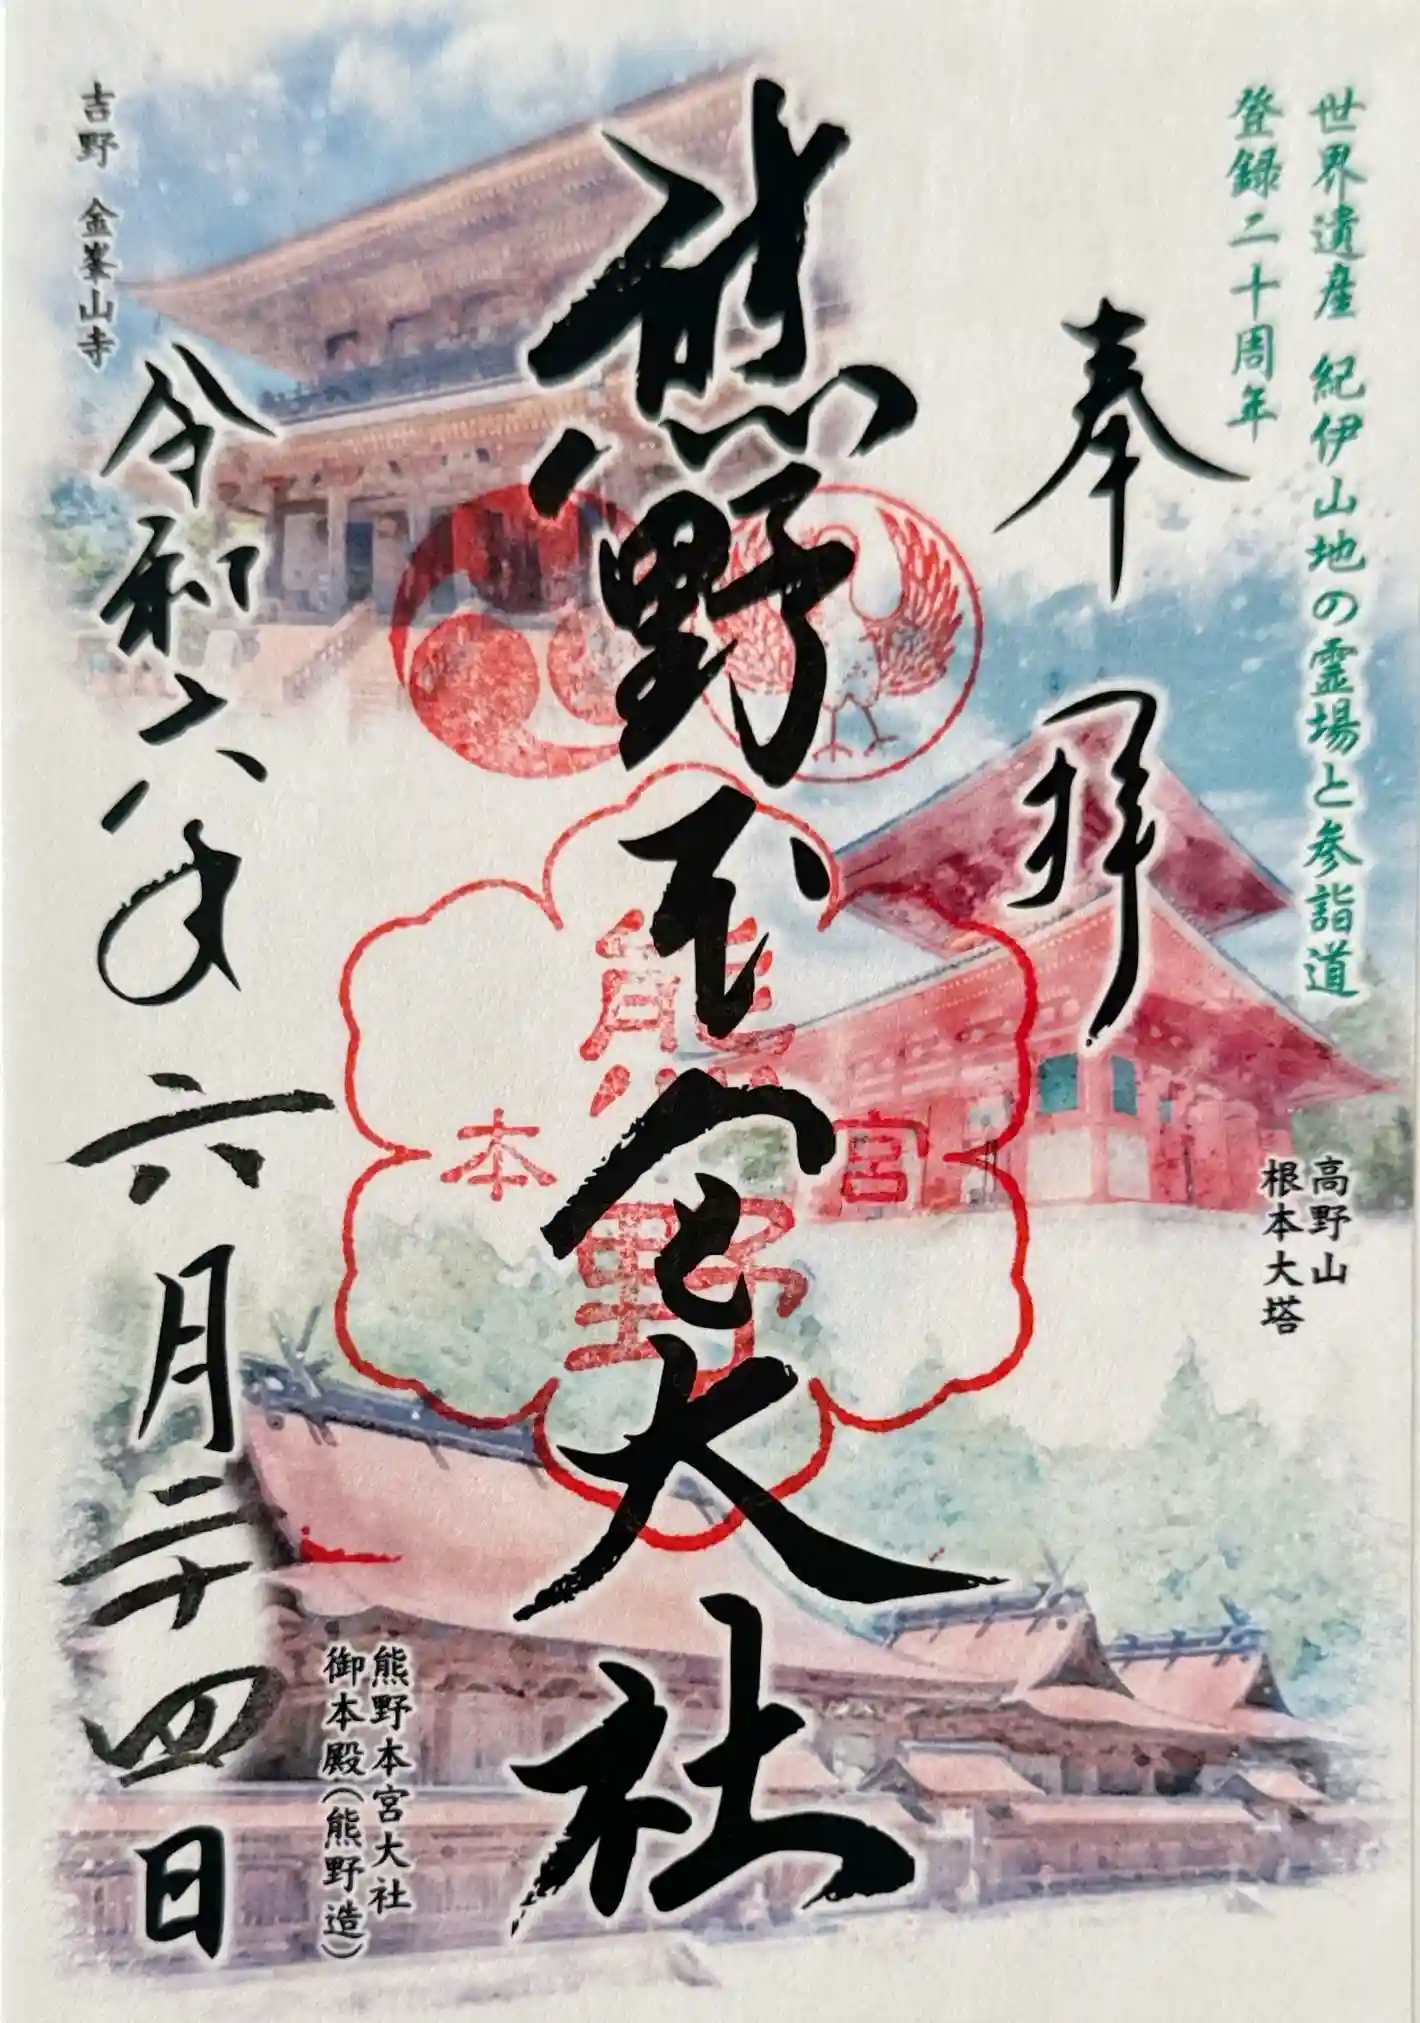 世界遺産 紀伊山地の霊場と参詣道
登録二十周年
奉拝
高野山
根本大塔
熊野本宮大社
熊野
本宮
熊野本宮大社
御本殿(熊野造)
吉野 金峯山寺
令和六年六月二十四日